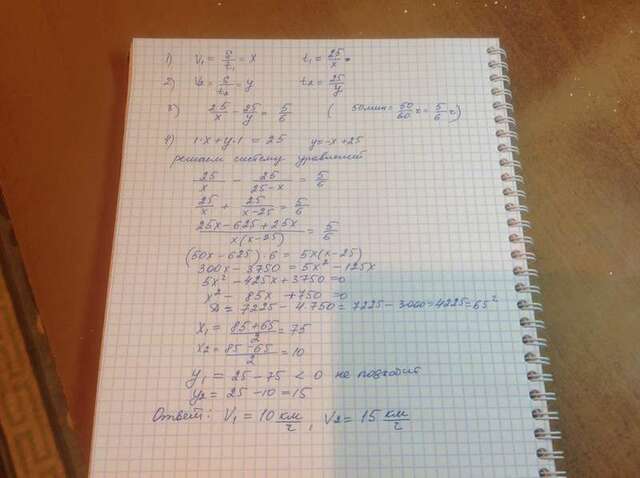 1) V₁ = S/t₁ = x t₁ = 25/x
2) V₂ = S/t₂ = y t₂ = 25/y
3) 25/x - 25/y = 5/6 ( 50 мин = 50/60 ч = 5/6 ч)
4) 1·x + y·1 = 25 y = -x + 25
решаем систему уравнений
25/x - 25/(25-x) = 5/6
25/x + 25/(x-25) = 5/6
(25x - 625 + 25x)/(x(x-25)) = 5/6
(50x - 625)·6 = 5x(x-25)
300x - 3750 = 5x² - 125x
5x² - 425x + 3750 = 0
x² - 85x + 750 = 0
D = 7225 - 4·750 = 7225 - 3000 = 4225 = 65²
x₁ = (85+65)/2 = 75
x₂ = (85-65)/2 = 10
y₁ = 25 - 75 < 0 не подходит
y₂ = 25 - 10 = 15
Ответ: V₁ = 10 км/ч, V₂ = 15 км/ч